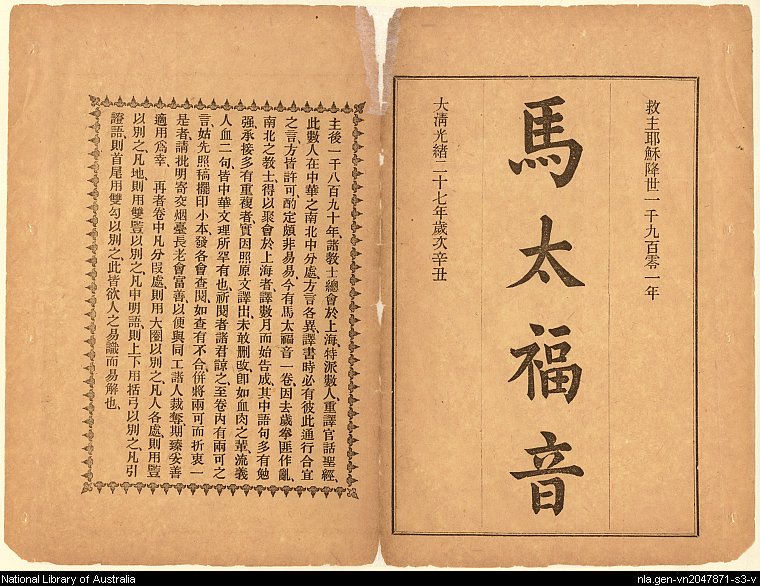 救主耶穌降世一千九百零一年
馬太福音
大清光緒二十七年歲次辛丑
主後一千八百九十年、諸教士總會於上海、特派數人、重譯官話聖經、
此數人在中華之南北中分處、方言各異、譯書時必有彼此通行合宜
之言、方皆許可、酌定頗非易易、今有馬太福音一卷、因去歲拳匪作亂、
南北之教士、得以聚會於上海者、譯數月而始告成、其中語句多有勉
强承接、多有重複者、實因照原文譯出、未敢删改、卽如血肉之輩、流義
人血二句、皆中華文理所罕有也、祈閱者諸君諒之、至卷內有兩可之
言、姑先照稿擺印小本、發各會查閱、如查有不合、倂將兩可而折衷一
是者、請批明寄交烟臺長老會富善、以便與同工諸人裁奪、期臻妥善
適用爲幸、 再者卷中凡分段處、則用大圈以別之、凡人名處、則用豎
以別之、凡地、則用雙豎以別之、凡申明語、則上下用括弓以別之、凡引
證語、則首尾用雙勾以別之、此皆欲人之易識而易解也、
National Library of Australia
nla.gen-vn2047871-s3-v